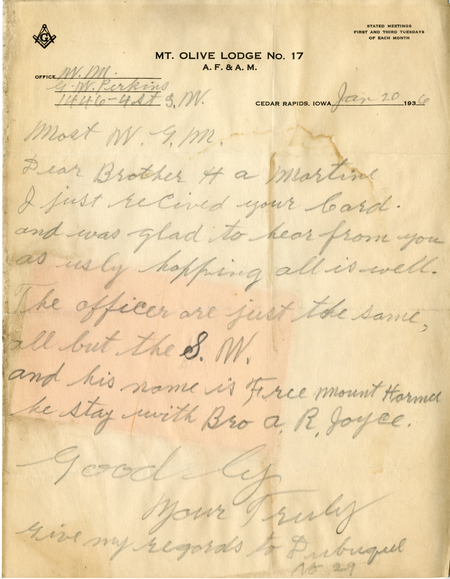 G
STATED MEETINGS
FIRST AND THIRD TUESDAYS
OF EACH MONTH
MT. OLIVE LODGE No. 17
A. F. & A. M.
OFFICE W. M.
G. W. Perkins
1446-4 St S. W.
CEDAR RAPIDS, IOWA, Jan 20 1936
Most W. G. M.
Dear Brother H a Martine
I just recived your Card.
and was glad to hear from you
as usly hopping all is well.
The officer are just the same,
all but the S. W.
and his name is Free mount Hormel
he stay with Bro a. R. Joyce.
Good by
Your Truly
give my regards to Dubuquel
No 29